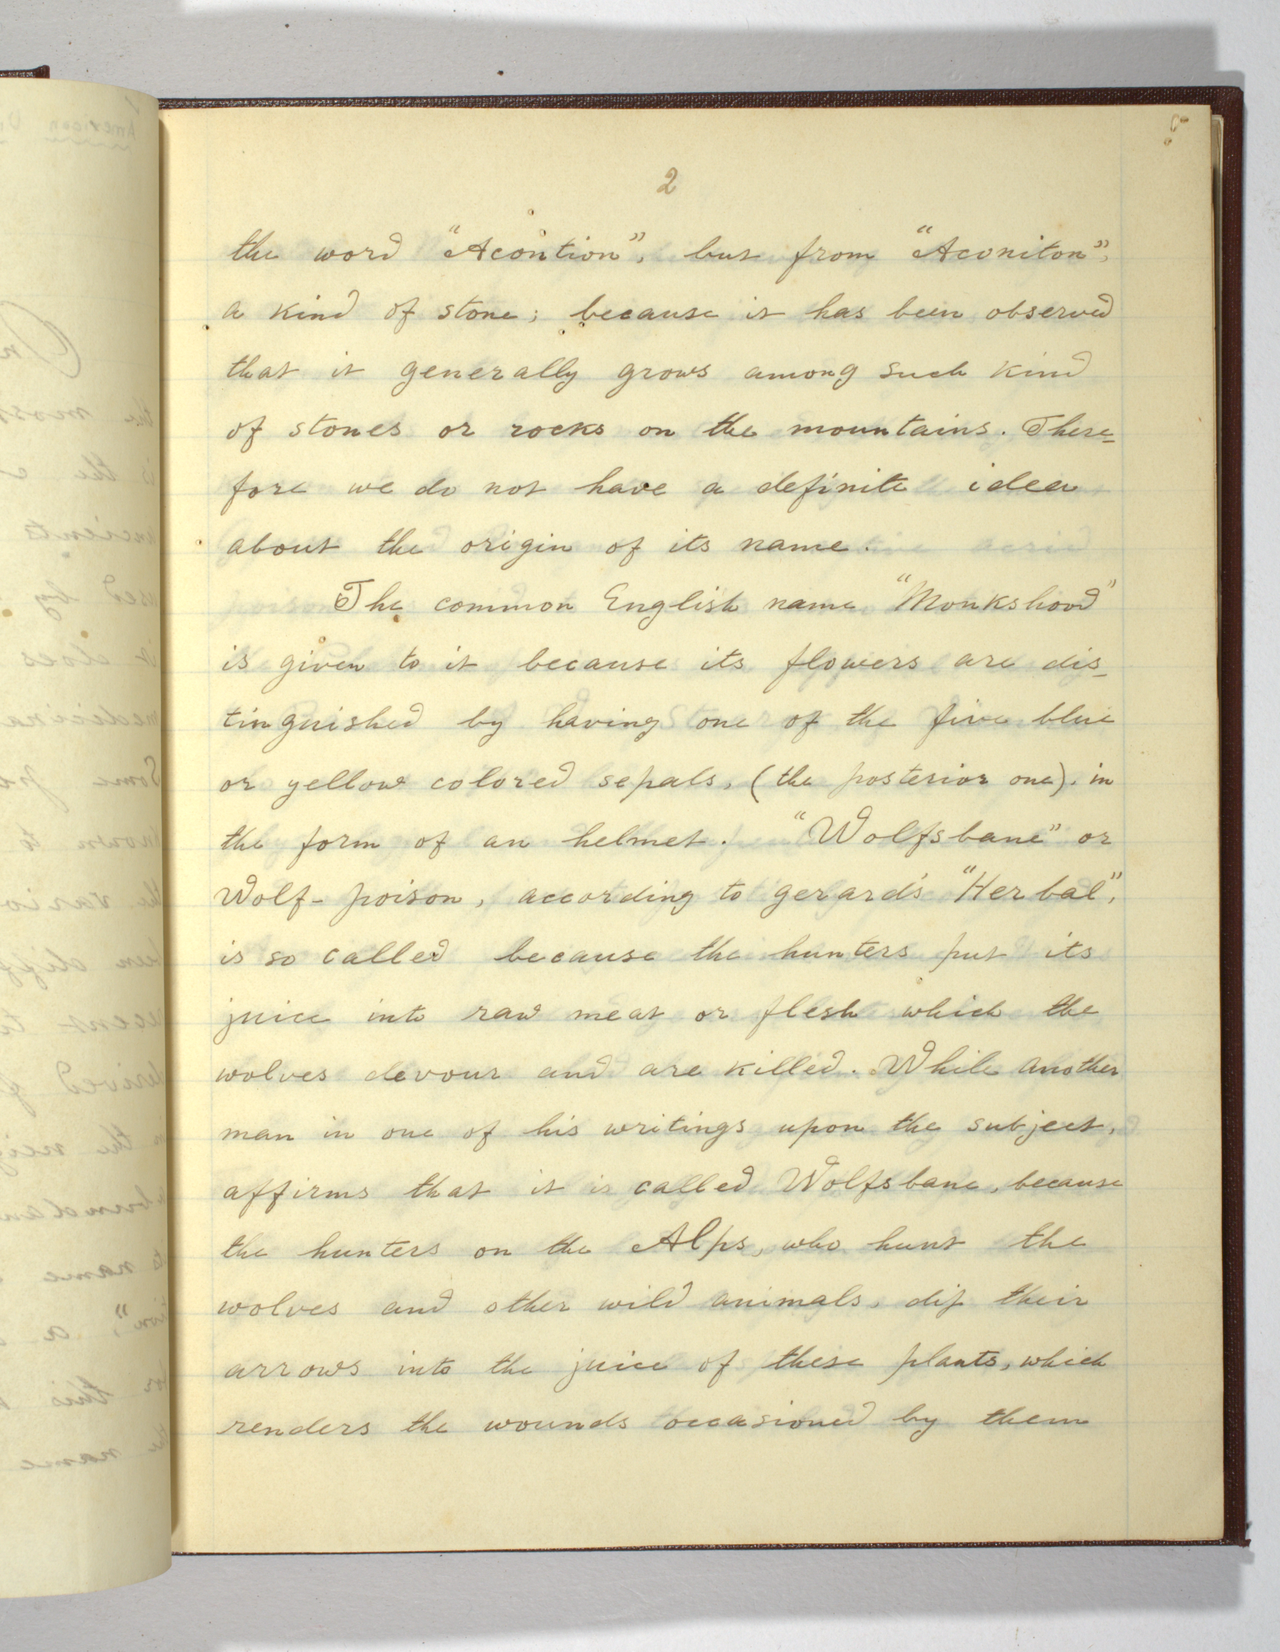 2
the word "Acontion", but from "Aconiton",
a kind of stone; because it has been observed
that it generally grows among such kind
of stones or rocks on the mountains. There=
fore we do not have a definite idea
about the origin of its name.
The common English name "Monkshood"
is given to it because its flowers are dis_
tinguished by having one of the five blue
or yellow colored sepals, (the posterior one), in
the form of an helmet. "Wolfsbane" or
Wolf-poison, according to gerard's "Herbal",
is so called because the hunters put its
juice into raw meat or flesh which the
wolves devour and are killed. While another
man in one of his writings upon the subject,
affirms that it is called Wolfsbane, because
the hunters on the Alps, who hunt the
wolves and other wild animals, dip their
arrows into the juice of these plants, which
renders the wounds occasioned by them